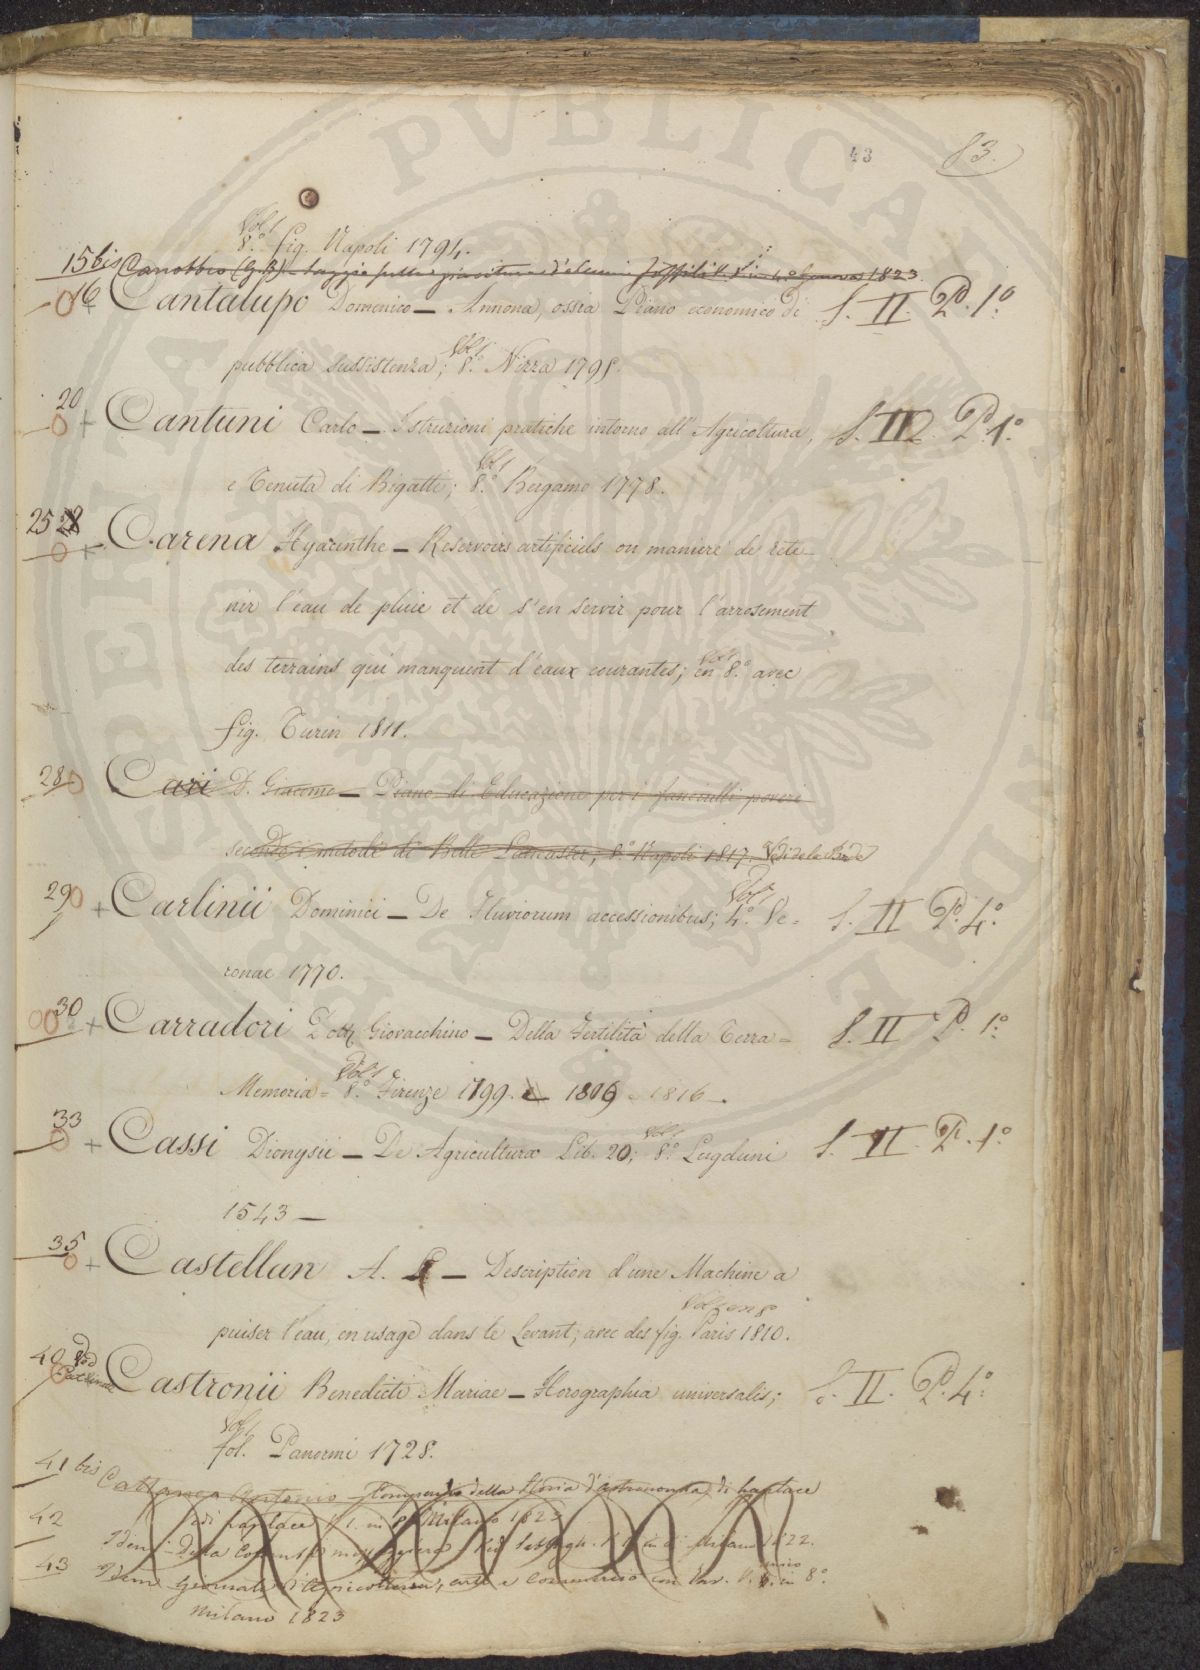 43 83.
Vol 1
8.° fig. Napoli 1794.
15 bis Canobbio (G.B.) Saggio sulla giacitura d'alcuni fossili V. 1 in 4.° Genova 1823
16 + Cantalupo Domenico — Annona, ossia Piano economico di S. II. P. 1.°
Vol 1
pubblica sussistenza; 8.° Nizza 1795.
20 + Cantuni Carlo — Istruzioni pratiche intorno all'Agricoltura, S. II. P. 1.°
Vol 1
e Tenuta di Bigatti; 8.° Bergamo 1778.
25 + Carena Hyacinthe — Reservoirs artificiels ou maniere de rete-
nir l'eau de pluie et de s'en servir pour l'arrosement
Vol 1
des terrains qui manquent d'eaux courantes; en 8.° avec
fig. Turin 1811.
28 Cari D. Giacomo — Piano di Educazione per i fanciulli poveri
secondo i metodi di Bell e Lancaster; 8.° Napoli 1817.
29 + Carlinii Dominici — De Fluviorum accessionibus; 4.° Ve= S. II P. 4.°
Vol 1
ronae 1770.
30 + Carradori Dott. Giovacchino — Della Fertilità della Terra = S. II P. 1.°
Vol 1
Memoria = 8.° Firenze 1799. e 1806 - 1816 —.
33 + Cassi Dionysii — De Agricultura Lib. 20; 8.° Lugduni S. II. P. 1.°
Vol 1
1543 —
35 + Castellan A. L — Description d'une Machine a
Vol 1 en 8°
puiser l'eau, en usage dans le Levant; avec des fig. Paris 1810.
40 Castronii Benedicti Mariae — Horographia universalis; S. II. P. 4.°
Vol 1
fol. Panormi 1728.
41 bis Cattaneo Antonio — Compendio della Storia d'astronomia di Laplace
di Laplace V. 1. in 8.° Milano 1823
42 Idem Milano 1822.
43 Idem Giornale d'Agricoltura, arti e Commercio in 8°.
Milano 1823